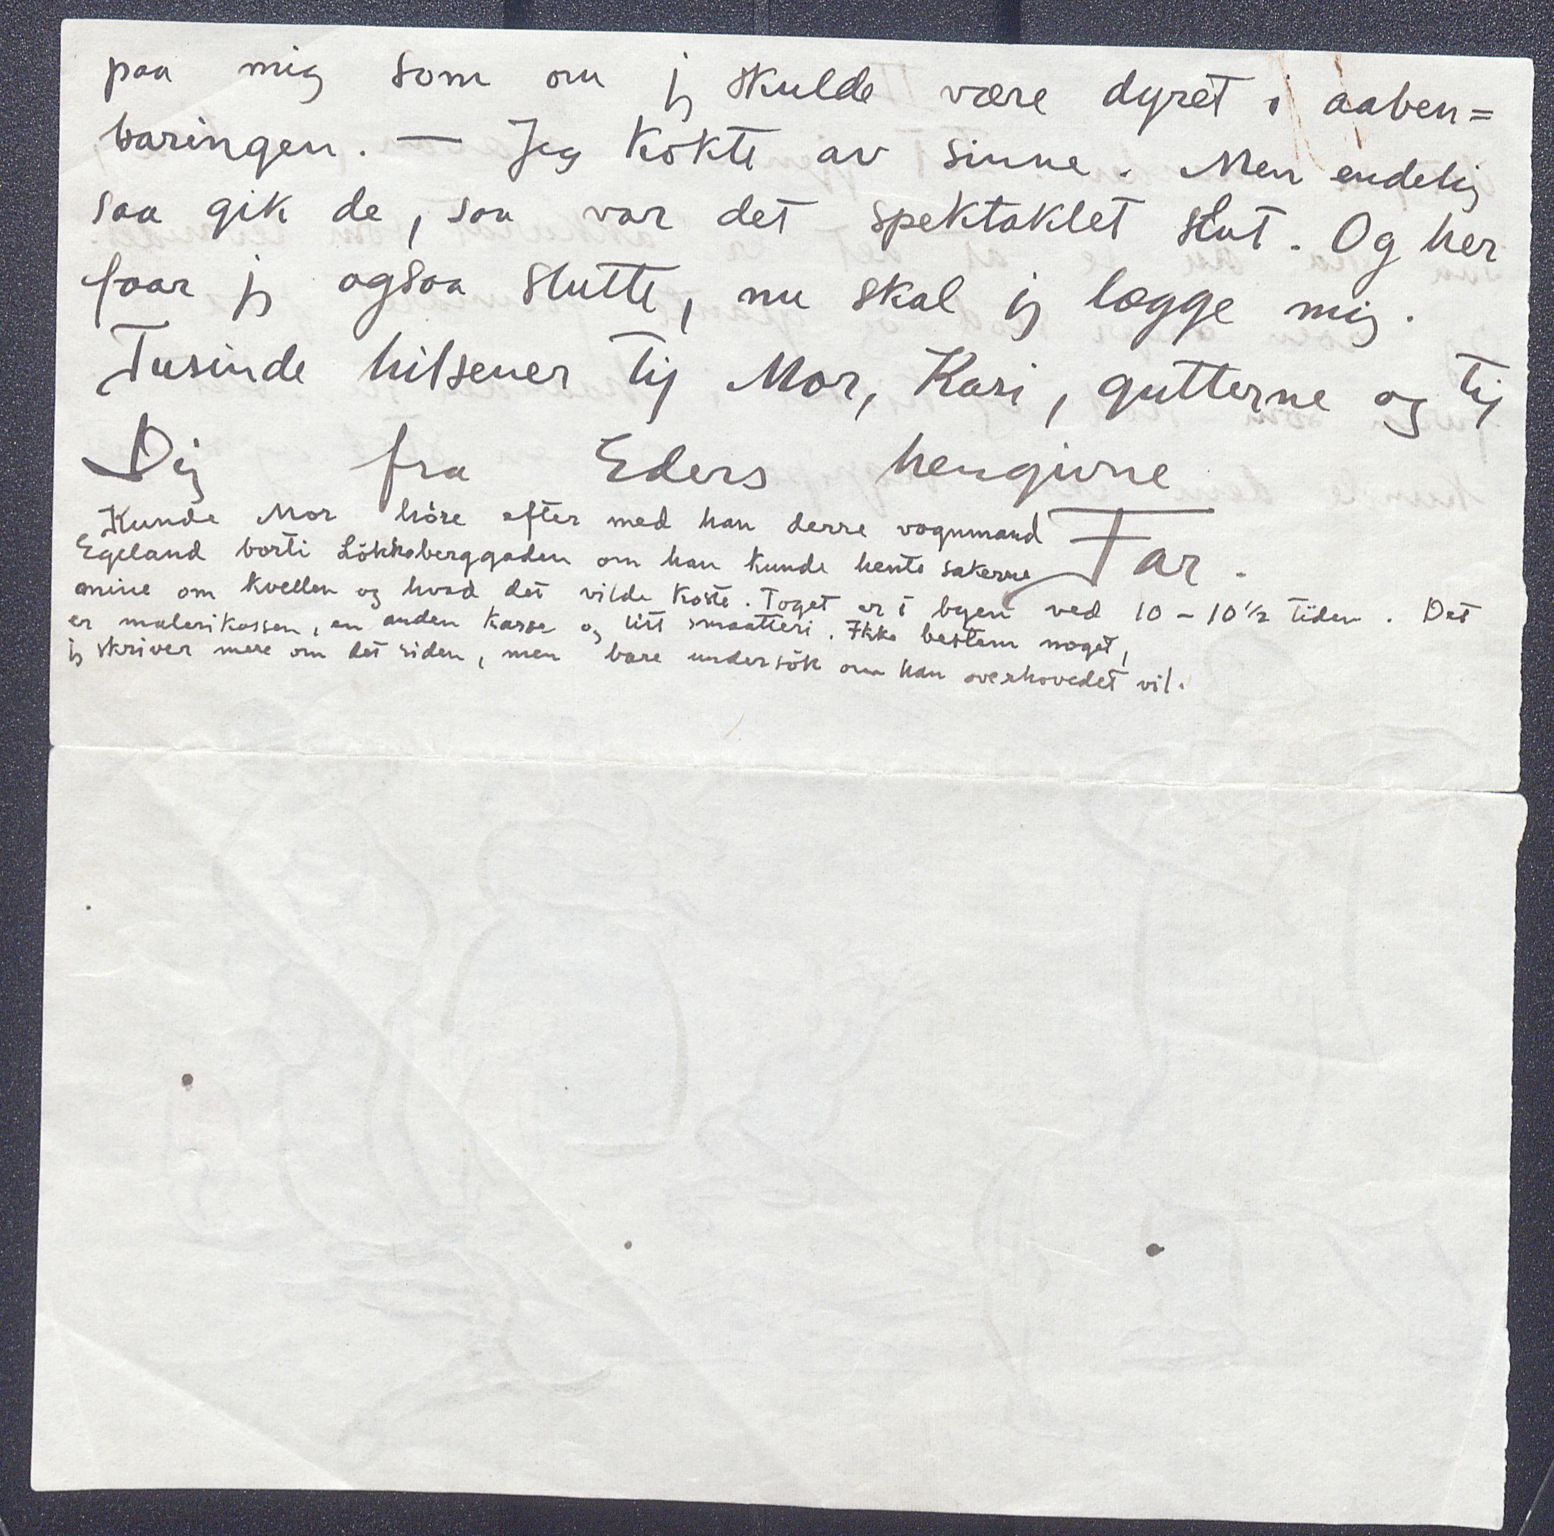 paa mig som om jeg skulde være dyret i aaben=
baringen. — Jeg kokte av sinne. Men endelig
saa gik de, saa var det spektaklet slut. Og her
faar jeg ogsaa slutte, nu skal jeg lægge mig.
Tusinde hilsener til Mor, Kari, gutterne og til
Dig fra Eders hengivne
Far.
Kunde Mor höre efter med han derre vognmand
Egeland borti Lökkeberggaden om han kunde hente sakerne
mine om kvellen og hvad det vilde koste. Toget er i byen ved 10 - 10 1/2 tiden. Det
er malerikassen, en anden kasse og litt smaatteri. Ikke bestem noget,
jeg skriver mere om det siden, men bare undersök om han overhovedet vil.